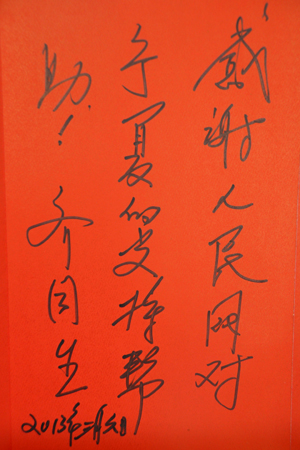 感谢人民网对
宁夏的支持帮
助！ 齐同生
2013年二月六日